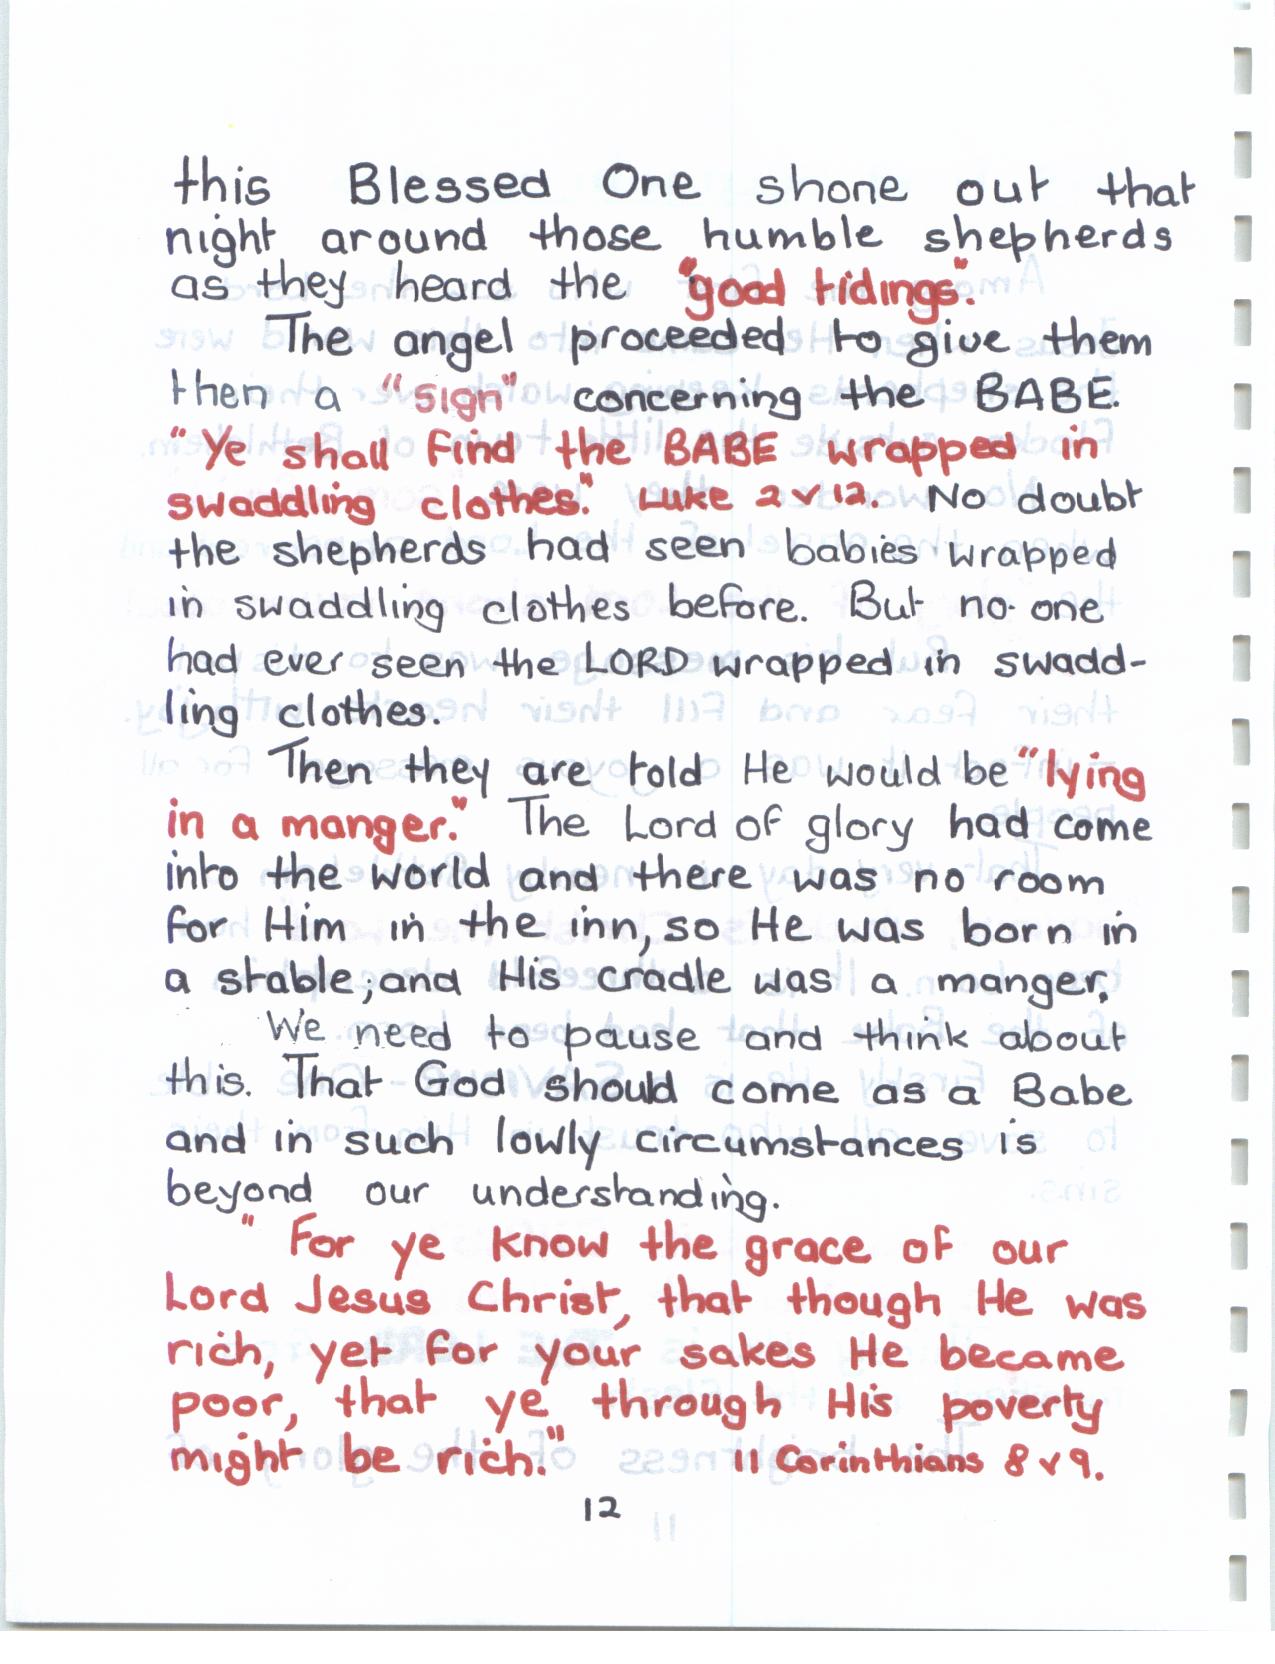 this Blessed One shone out that
night around those humble shepherds
as they heard the "good tidings".
The angel proceeded to give them
then a "sign" concerning the BABE.
"Ye shall find the BABE wrapped in
swaddling clothes." Luke 2 v 12. No doubt
the shepherds had seen babies wrapped
in swaddling clothes before. But no one
had ever seen the LORD wrapped in swadd-
ling clothes.
Then they are told He would be "lying
in a manger." The Lord of glory had come
into the world and there was no room
for Him in the inn, so He was born in
a stable; and His cradle was a manger.
We need to pause and think about
this. That God should come as a Babe
and in such lowly circumstances is
beyond our understanding.
"For ye know the grace of our
Lord Jesus Christ, that though He was
rich, yet for your sakes He became
poor, that ye through His poverty
might be rich." 11 Corinthians 8 v 9.
12